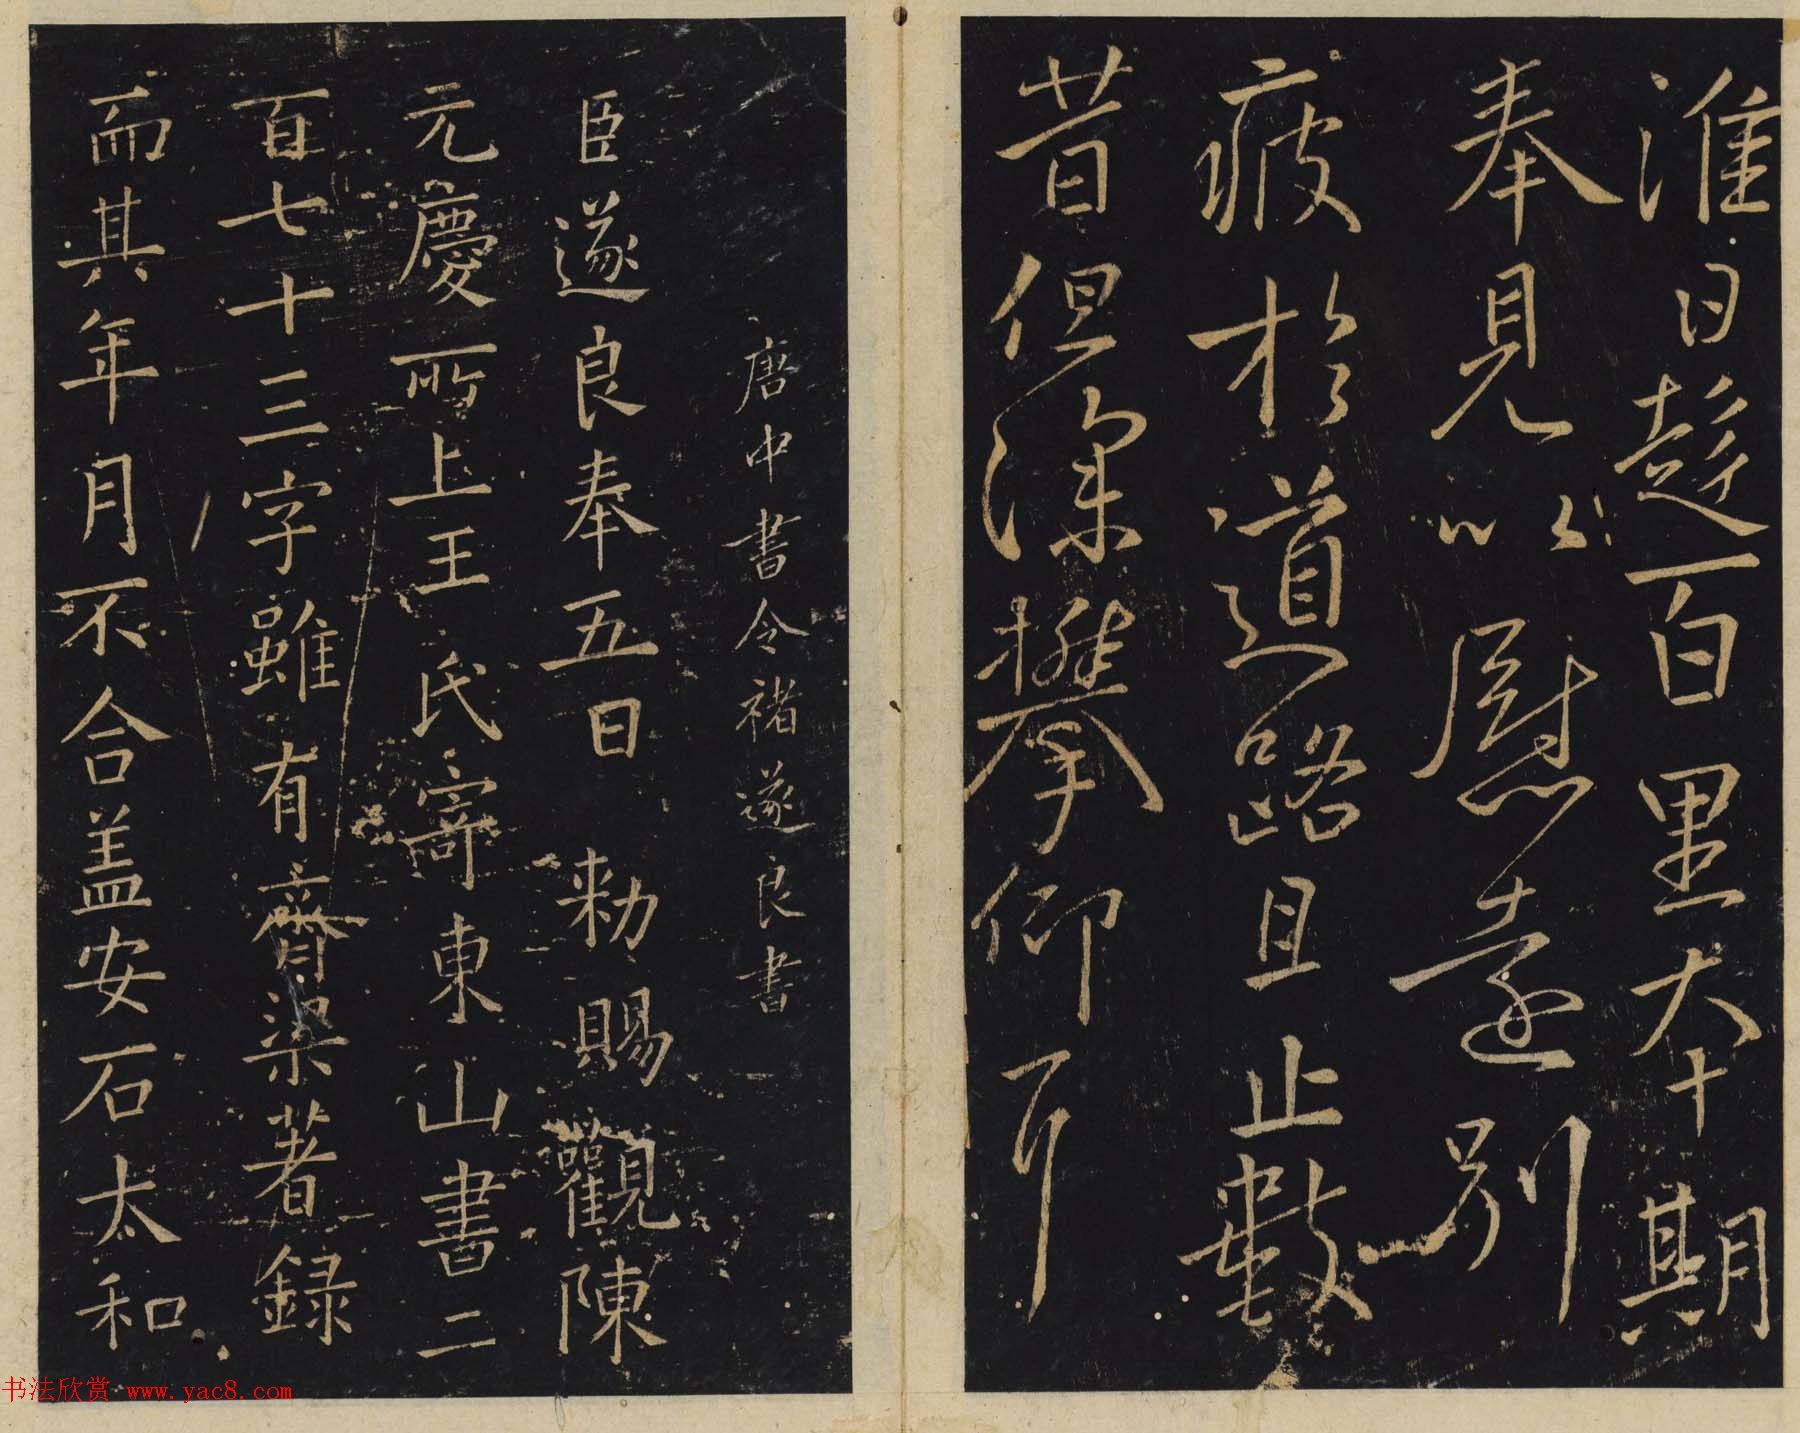 淮日趍百里大十期
奉見以慰遠別
疲於道路且止數
昔但深攀仰耳
唐中書令褚遂良書
臣遂良奉五日 勅賜觀陳
元慶所上王氏寄東山書二
百七十三字雖有齊梁著錄
而其年月不合盖安石太和
书法欣赏 www.yac8.com